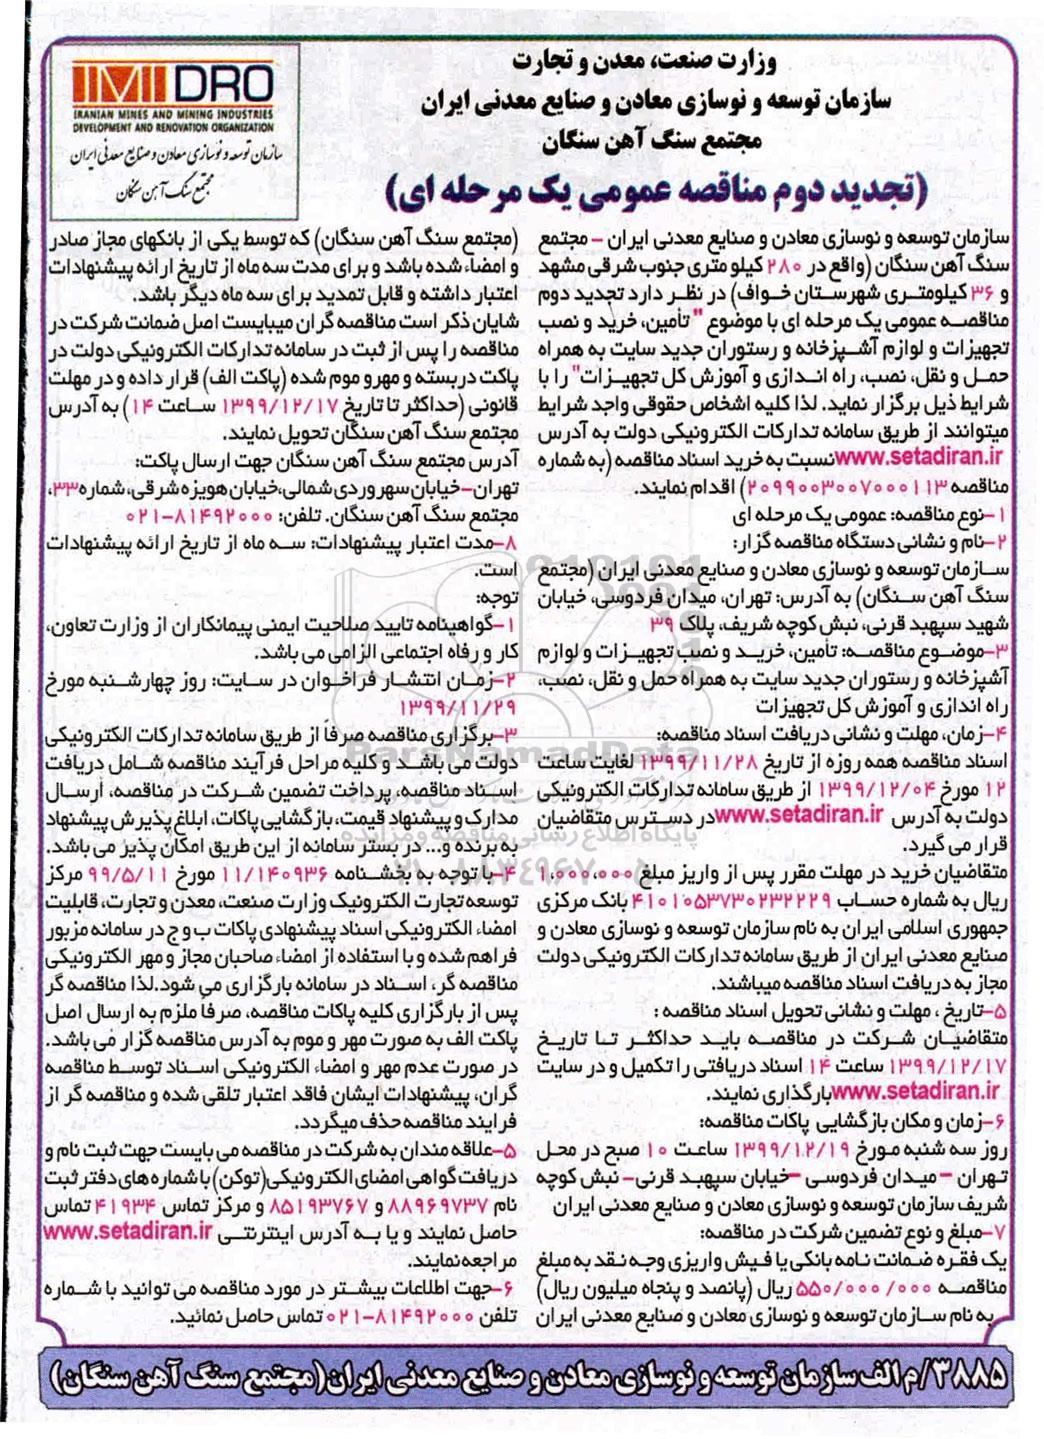 وزارت صنعت، معدن و تجارت
سازمان توسعه و نوسازی معادن و صنایع معدنی ایران
مجتمع سنگ آهن سنگان
(تجدید دوم مناقصه عمومی یک مرحله ای)
IMIDRO
IRANIAN MINES AND MINING INDUSTRIES
DEVELOPMENT AND RENOVATION ORGANIZATION
سازمان توسعه و نوسازی معادن و صنایع معدنی ایران
مجتمع سنگ آهن سنگان
سازمان توسعه و نوسازی معادن و صنایع معدنی ایران – مجتمع
سنگ آهن سنگان (واقع در ۲۸۰ کیلو متری جنوب شرقی مشهد
و ۳۶ کیلومتری شهرستان خواف) در نظر دارد تجدید دوم
مناقصه عمومی یک مرحله ای با موضوع "تأمین، خرید و نصب
تجهیزات و لوازم آشپزخانه و رستوران جدید سایت به همراه
حمل و نقل، نصب، راه اندازی و آموزش کل تجهیزات" را با
شرایط ذیل برگزار نماید. لذا کلیه اشخاص حقوقی واجد شرایط
میتوانند از طریق سامانه تدارکات الکترونیکی دولت به آدرس
www.setadiran.ir نسبت به خرید اسناد مناقصه (به شماره
مناقصه ۲۰۹۹۰۰۳۰۰۷۰۰۰۱۱۳) اقدام نمایند.
۱-نوع مناقصه: عمومی یک مرحله ای
۲-نام و نشانی دستگاه مناقصه گزار:
سازمان توسعه و نوسازی معادن و صنایع معدنی ایران (مجتمع
سنگ آهن سنگان) به آدرس: تهران، میدان فردوسی، خیابان
شهید سپهبد قرنی، نبش کوچه شریف، پلاک ۳۹
۳-موضوع مناقصه: تأمین، خرید و نصب تجهیزات و لوازم
آشپزخانه و رستوران جدید سایت به همراه حمل و نقل، نصب،
راه اندازی و آموزش کل تجهیزات
۴-زمان، مهلت و نشانی دریافت اسناد مناقصه:
اسناد مناقصه همه روزه از تاریخ ۱۳۹۹/۱۱/۲۸ لغایت ساعت
۱۲ مورخ ۱۳۹۹/۱۲/۰۴ از طریق سامانه تدارکات الکترونیکی
دولت به آدرس www.setadiran.ir در دسترس متقاضیان
قرار می گیرد.
متقاضیان خرید در مهلت مقرر پس از واریز مبلغ ۱,۰۰۰,۰۰۰
ریال به شماره حساب ۴۱۰۱۰۵۳۷۳۰۲۳۲۲۲۹ بانک مرکزی
جمهوری اسلامی ایران به نام سازمان توسعه و نوسازی معادن و
صنایع معدنی ایران از طریق سامانه تدارکات الکترونیکی دولت
مجاز به دریافت اسناد مناقصه میباشند.
۵-تاریخ ، مهلت و نشانی تحویل اسناد مناقصه :
متقاضیان شرکت در مناقصه باید حداکثر تا تاریخ
۱۳۹۹/۱۲/۱۷ ساعت ۱۴ اسناد دریافتی را تکمیل و در سایت
www.setadiran.ir بارگذاری نمایند.
۶-زمان و مکان بازگشایی پاکات مناقصه:
روز سه شنبه مورخ ۱۳۹۹/۱۲/۱۹ ساعت ۱۰ صبح در محل
تهران – میدان فردوسی – خیابان سپهبد قرنی – نبش کوچه
شریف سازمان توسعه و نوسازی معادن و صنایع معدنی ایران
۷-مبلغ و نوع تضمین شرکت در مناقصه:
یک فقره ضمانت نامه بانکی یا فیش واریزی وجه نقد به مبلغ
مناقصه ۵۵۰/۰۰۰/۰۰۰ ریال (پانصد و پنجاه میلیون ریال)
به نام سازمان توسعه و نوسازی معادن و صنایع معدنی ایران
(مجتمع سنگ آهن سنگان) که توسط یکی از بانکهای مجاز صادر
و امضاء شده باشد و برای مدت سه ماه از تاریخ ارائه پیشنهادات
اعتبار داشته و قابل تمدید برای سه ماه دیگر باشد.
شایان ذکر است مناقصه گران میبایست اصل ضمانت شرکت در
مناقصه را پس از ثبت در سامانه تدارکات الکترونیکی دولت در
پاکت دربسته و مهرو موم شده (پاکت الف) قرار داده و در مهلت
قانونی (حداکثر تا تاریخ ۱۳۹۹/۱۲/۱۷ ساعت ۱۴) به آدرس
مجتمع سنگ آهن سنگان تحویل نمایند.
آدرس مجتمع سنگ آهن سنگان جهت ارسال پاکت:
تهران-خیابان سهروردی شمالی،خیابان هویزه شرقی، شماره۳۳،
مجتمع سنگ آهن سنگان. تلفن: ۸۱۴۹۲۰۰۰-۰۲۱
۸-مدت اعتبار پیشنهادات: سه ماه از تاریخ ارائه پیشنهادات
است.
توجه:
۱-گواهینامه تایید صلاحیت ایمنی پیمانکاران از وزارت تعاون،
کار و رفاه اجتماعی الزامی می باشد.
۲-زمان انتشار فراخوان در سایت: روز چهارشنبه مورخ
۱۳۹۹/۱۱/۲۹
۳-برگزاری مناقصه صرفاً از طریق سامانه تدارکات الکترونیکی
دولت می باشد و کلیه مراحل فرآیند مناقصه شامل دریافت
اسناد مناقصه، پرداخت تضمین شرکت در مناقصه، ارسال
مدارک و پیشنهاد قیمت، بازگشایی پاکات، ابلاغ پذیرش پیشنهاد
به برنده و... در بستر سامانه از این طریق امکان پذیر می باشد.
۴-با توجه به بخشنامه ۱۱/۱۴۰۹۳۶ مورخ ۹۹/۵/۱۱ مرکز
توسعه تجارت الکترونیک وزارت صنعت، معدن و تجارت، قابلیت
امضاء الکترونیکی اسناد پیشنهادی پاکات ب و ج در سامانه مزبور
فراهم شده و با استفاده از امضاء صاحبان مجاز و مهر الکترونیکی
مناقصه گر، اسناد در سامانه بارگزاری می شود.لذا مناقصه گر
پس از بارگزاری کلیه پاکات مناقصه، صرفاً ملزم به ارسال اصل
پاکت الف به صورت مهر و موم به آدرس مناقصه گزار می باشد.
در صورت عدم مهر و امضاء الکترونیکی اسناد توسط مناقصه
گران، پیشنهادات ایشان فاقد اعتبار تلقی شده و مناقصه گر از
فرایند مناقصه حذف میگردد.
۵-علاقه مندان به شرکت در مناقصه می بایست جهت ثبت نام و
دریافت گواهی امضای الکترونیکی(توکن) با شماره های دفتر ثبت
نام ۸۸۹۶۹۷۳۷ و ۸۵۱۹۳۷۶۷ و مرکز تماس ۴۱۹۳۴ تماس
حاصل نمایند و یا به آدرس اینترنتی www.setadiran.ir
مراجعه نمایند.
۶-جهت اطلاعات بیشتر در مورد مناقصه می توانید با شماره
تلفن ۸۱۴۹۲۰۰۰-۰۲۱ تماس حاصل نمائید.
ParsNamadData
پایگاه اطلاع رسانی مناقصه و مزایده
۰۲۱-۸۸۳۴۹۶۷۰-۵
۳۸۸۵/م الف سازمان توسعه و نوسازی معادن و صنایع معدنی ایران(مجتمع سنگ آهن سنگان)